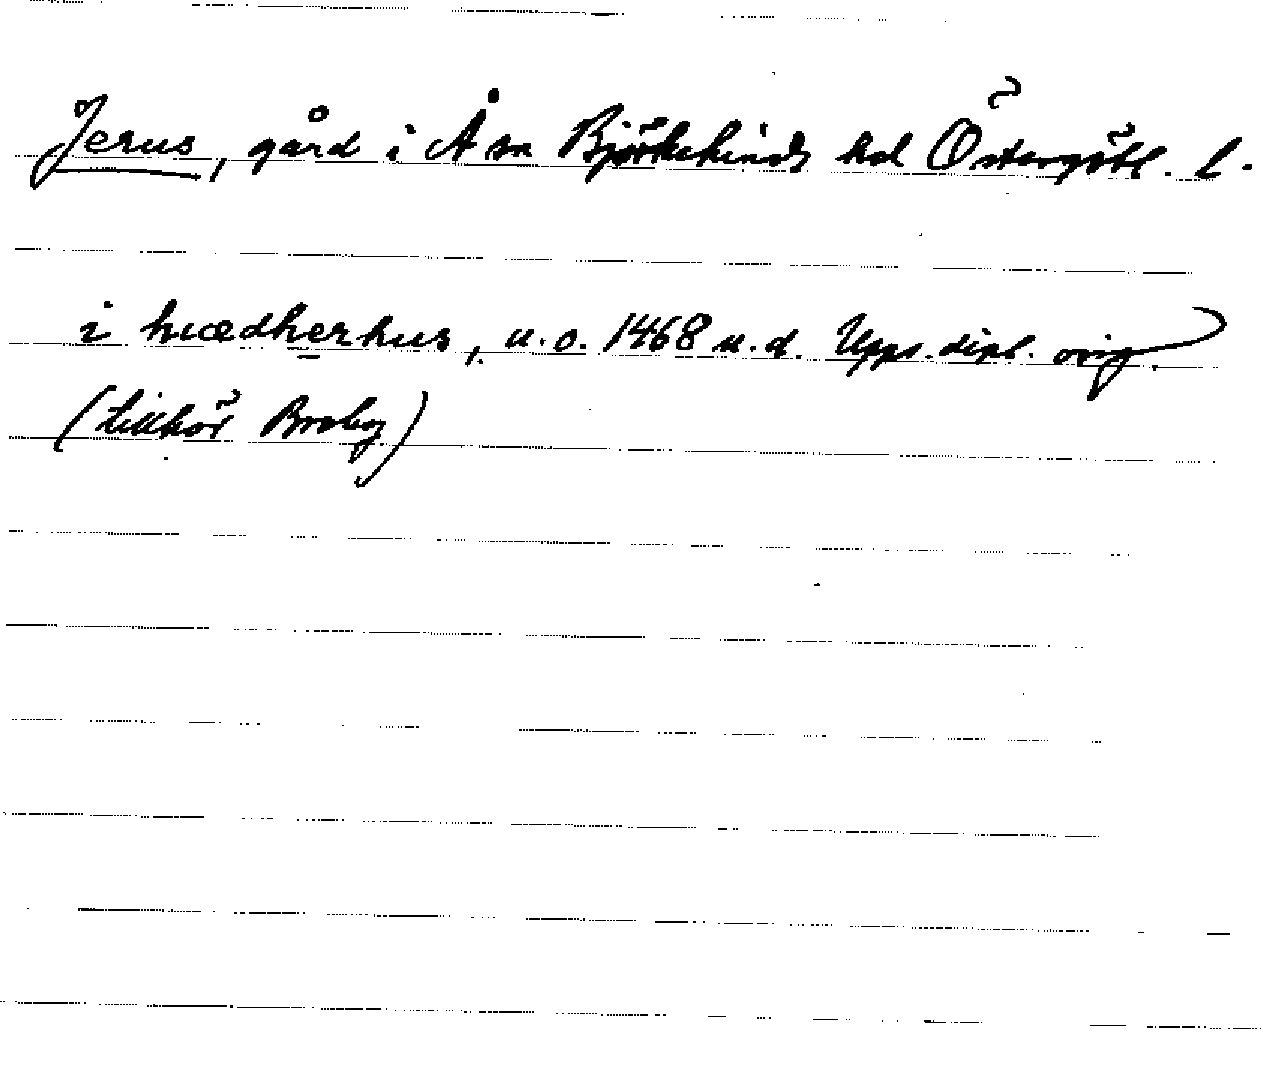 Jerus, gård i Å sn Björkekinds hd Östergötl. l.
i hwædherhus, u.o. 1468 u.d. Upps. dipl. orig.
(tillhör Broby)